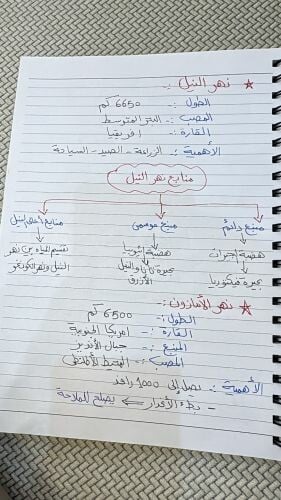 نهر النيل :-
الطول :- 6650 كم
المصب :- البحر المتوسط
القارة :- افريقيا
الأهمية :- الزراعة - الصيد - السياحة
منابع نهر النيل
منبع دائم
هضبة
بحيرة فيكتوريا
منبع موسمي
هضبة إثيوبيا
بحيرة تانا والنيل الأزرق
منابع
تقسيم المياه بين نهر
النيل ونهر الكونغو
نهر الأمازون :-
الطول :- 6500 كم
القارة :- امريكا الجنوبية
المنبع :- جبال الأنديز
المصب :- المحيط الأطلنطي
الأهمية :- يصل إلى 1000 رافد
- بطء الأنحدار ← يصلح للملاحة